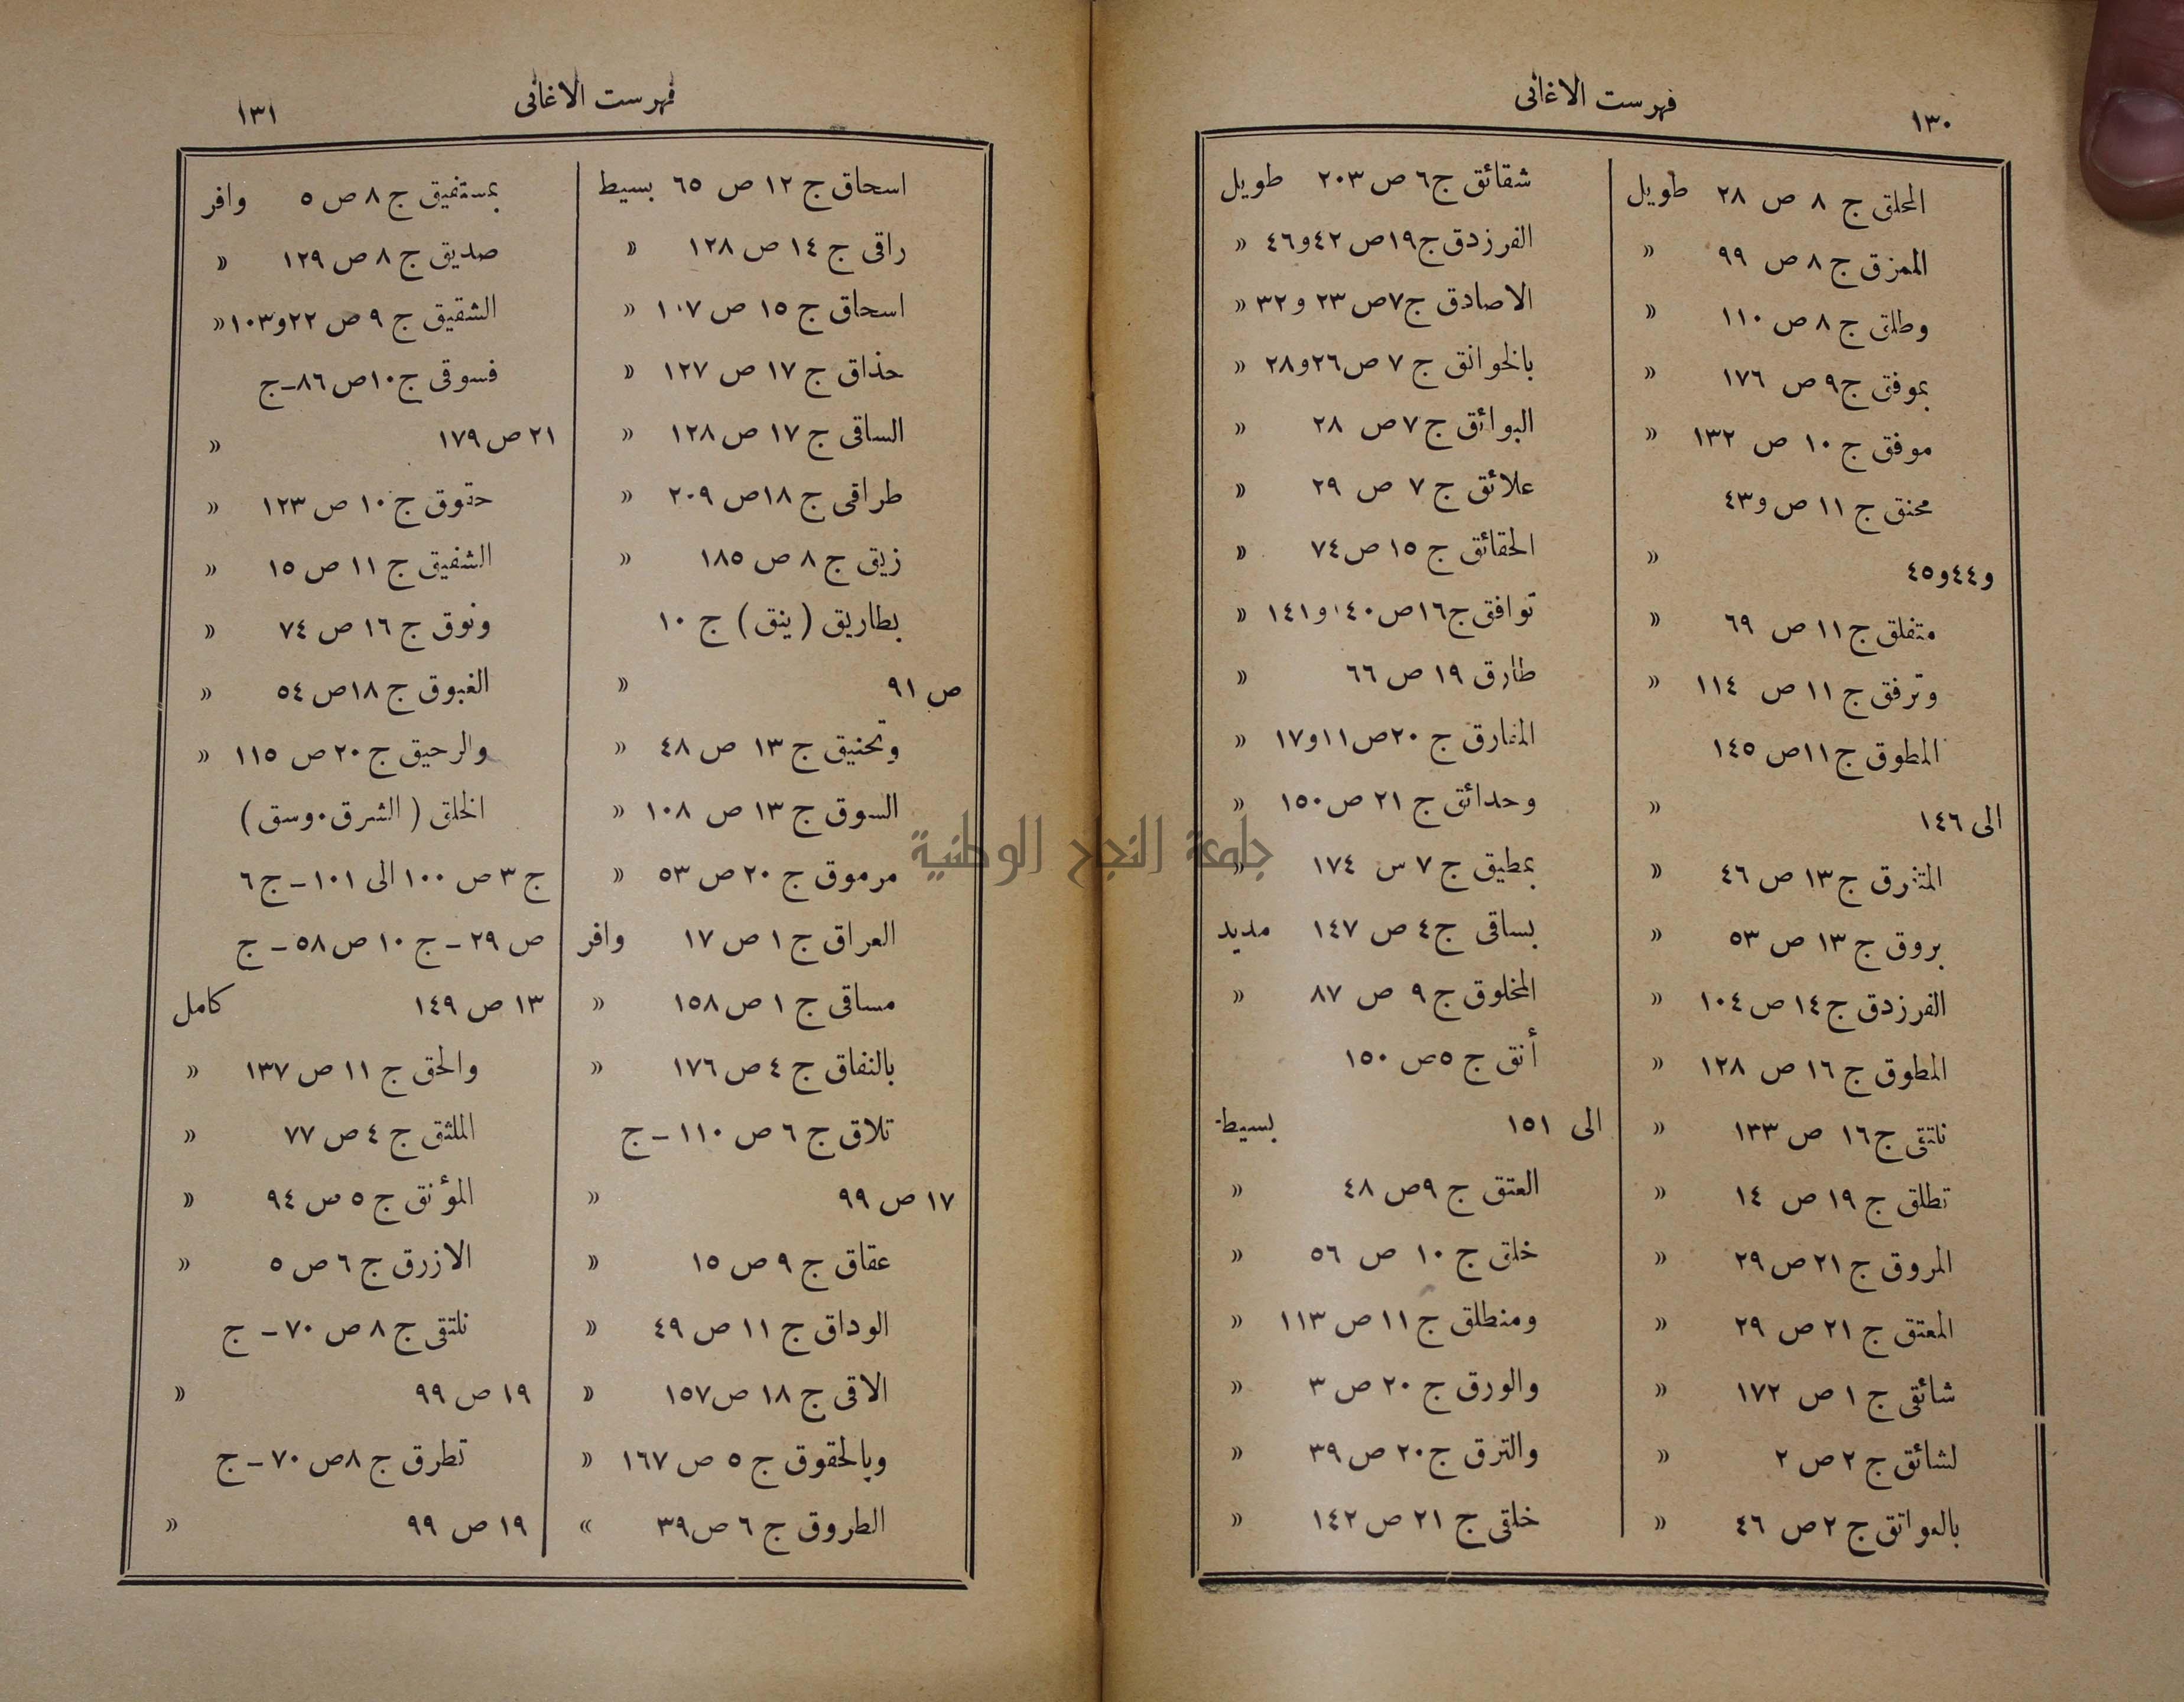 ١٣٠
فهرست الاغانى
المحلق ج ٨ ص ٢٨ طويل
الممزق ج ٨ ص ٩٩ »
وطلق ج ٨ ص ١١٠ »
بموفق ج ٩ ص ١٧٦ »
موفق ج ١٠ ص ١٣٢ »
محنق ج ١١ ص و٤٣
و٤٤ و٤٥ »
متفلق ج ١١ ص ٦٩ »
وترفق ج ١١ ص ١١٤ »
المطوق ج ١١ ص ١٤٥
الى ١٤٦ »
المتشرق ج ١٣ ص ٤٦ »
بروق ج ١٣ ص ٥٣ »
الفرزدق ج ١٤ ص ١٠٤ »
المطوق ج ١٦ ص ١٢٨ »
نلتقى ج ١٦ ص ١٣٣ »
تطلق ج ١٩ ص ١٤ »
المروق ج ٢١ ص ٢٩ »
المعتق ج ٢١ ص ٢٩ »
شائقى ج ١ ص ١٧٢ »
لشائق ج ٢ ص ٢ »
بالعواتق ج ٢ ص ٤٦ »
شقائق ج ٦ ص ٢٠٣ طويل
الفرزدق ج ١٩ ص ٤٢ و٤٦ »
الاصادق ج ٧ ص ٢٣ و ٣٢ »
بالخوانق ج ٧ ص ٢٦ و٢٨ »
البوائق ج ٧ ص ٢٨ »
علائق ج ٧ ص ٢٩ »
الحقائق ج ١٥ ص ٧٤ »
توافق ج ١٦ ص ١٤٠ و ١٤١ »
طارق ١٩ ص ٦٦ »
المفارق ج ٢٠ ص ١١ و١٧ »
وحدائق ج ٢١ ص ١٥٠ »
بمطيق ج ٧ س ١٧٤ »
بساقى ج ٤ ص ١٤٧ مديد
المخلوق ج ٩ ص ٨٧ »
أنق ج ٥ ص ١٥٠
الى ١٥١ بسيط
العتق ج ٩ ص ٤٨ »
خلق ج ١٠ ص ٥٦ »
ومنطلق ج ١١ ص ١١٣ »
والورق ج ٢٠ ص ٣ »
والترق ج ٢٠ ص ٣٩ »
خلقى ج ٢١ ص ١٤٢ »
جامعة النجاح الوطنية
فهرست الاغانى
١٣١
اسحاق ج ١٢ ص ٦٥ بسيط
راقى ج ١٤ ص ١٢٨ »
اسحاق ج ١٥ ص ١٠٧ »
حذاق ج ١٧ ص ١٢٧ »
الساقى ج ١٧ ص ١٢٨ »
طراقى ج ١٨ ص ٢٠٩ »
زيق ج ٨ ص ١٨٥ »
بطاريق ( ينق ) ج ١٠
ص ٩١ »
وتحنيق ج ١٣ ص ٤٨ »
السوق ج ١٣ ص ١٠٨ »
مرموق ج ٢٠ ص ٥٣ »
العراق ج ١ ص ١٧ وافر
مساقى ج ١ ص ١٥٨ »
بالنفاق ج ٤ ص ١٧٦ »
تلاق ج ٦ ص ١١٠ – ج
١٧ ص ٩٩ »
عقاق ج ٩ ص ١٥ »
الوداق ج ١١ ص ٤٩ »
الاقى ج ١٨ ص ١٥٧ »
وبالحقوق ج ٥ ص ١٦٧ »
الطروق ج ٦ ص ٣٩ «
بمستفيق ج ٨ ص ٥ وافر
صديق ج ٨ ص ١٢٩ »
الشقيق ج ٩ ص ٢٢ و١٠٣ »
فسوقى ج ١٠ ص ٨٦ – ج
٢١ ص ١٧٩ »
حقوق ج ١٠ ص ١٢٣ »
الشفيق ج ١١ ص ١٥ »
ونوق ج ١٦ ص ٧٤ »
الغبوق ج ١٨ ص ٥٤ »
والرحيق ج ٢٠ ص ١١٥ »
الخلق ( الشرق . وسق )
ج ٣ ص ١٠٠ الى ١٠١ – ج ٦
ص ٢٩ – ج ١٠ ص ٥٨ – ج
١٣ ص ١٤٩ كامل
والحق ج ١١ ص ١٣٧ »
الملثق ج ٤ ص ٧٧ »
المؤنق ج ٥ ص ٩٤ »
الازرق ج ٦ ص ٥ »
نلتقى ج ٨ ص ٧٠ – ج
١٩ ص ٩٩ »
تطرق ج ٨ ص ٧٠ – ج
١٩ ص ٩٩ »